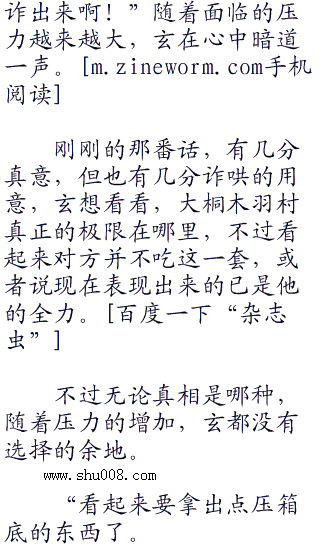 诈出来啊！”随着面临的压
力越来越大，玄在心中暗道
一声。[m.zineworm.com手机
阅读]
刚刚的那番话，有几分
真意，但也有几分诈哄的用
意，玄想看看，大桐木羽村
真正的极限在哪里，不过看
起来对方并不吃这一套，或
者说现在表现出来的已是他
的全力。[百度一下“杂志
虫”]
不过无论真相是哪种，
随着压力的增加，玄都没有
选择的余地。
www.shu008.com
“看起来要拿出点压箱
底的东西了。